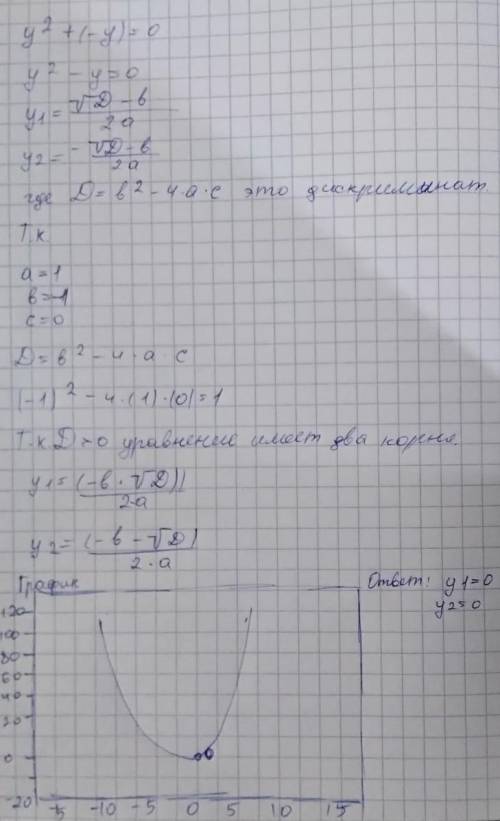 y² + (-y) = 0
y² - y = 0
y1 = √D - b / 2a
y2 = - √D - b / 2a
где D = b² - 4·a·c это дискриминат.
Т.к.
a = 1
b = -1
c = 0
D = b² - 4·a·c
(-1)² - 4·(1)·(0) = 1
Т.к D > 0 уравнение имеет два корня.
y1 = (-b · √D) / 2·a
y2 = (-b - √D) / 2·a
График
Ответ: y1=0
y2=0
120
100
80
60
40
20
0
-20
-10 -5 0 5 10 15